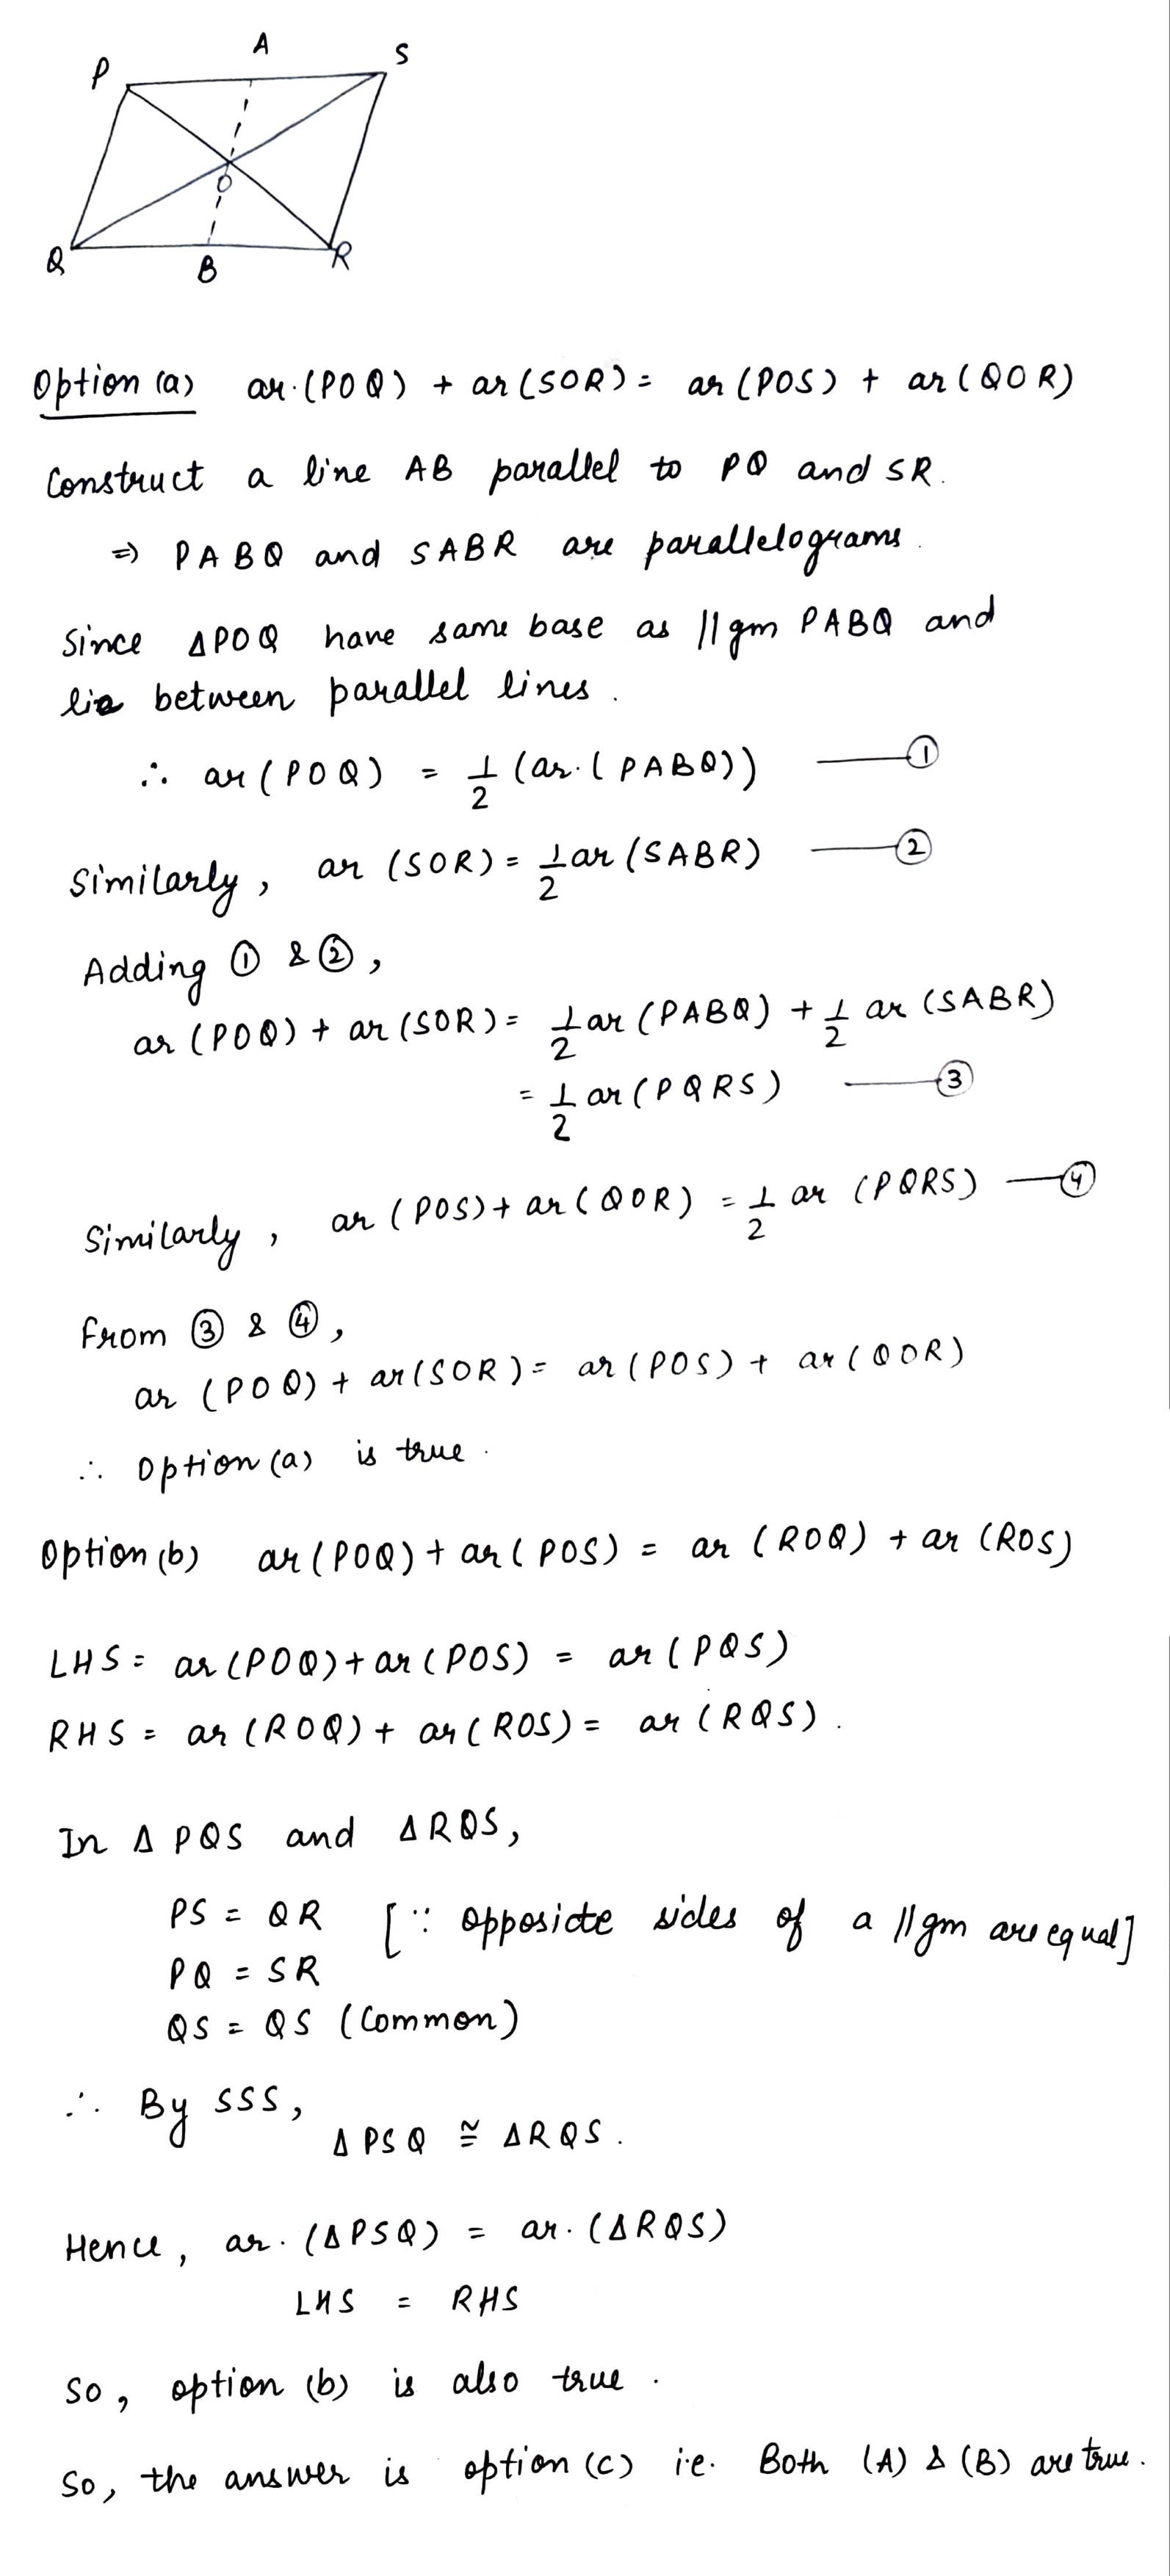 A
P
S
O
Q
B
R
Option (a) ar.(POQ) + ar(SOR) = ar(POS) + ar(QOR)
Construct a line AB parallel to PQ and SR.
⇒ PABQ and SABR are parallelograms.
Since ΔPOQ have same base as ||gm PABQ and
lie between parallel lines.
∴ ar(POQ) = 1/2 (ar.(PABQ)) —— ①
Similarly, ar(SOR) = 1/2 ar(SABR) —— ②
Adding ① & ②,
ar(POQ) + ar(SOR) = 1/2 ar(PABQ) + 1/2 ar(SABR)
= 1/2 ar(PQRS) —— ③
Similarly, ar(POS) + ar(QOR) = 1/2 ar(PQRS) —— ④
From ③ & ④,
ar(POQ) + ar(SOR) = ar(POS) + ar(QOR)
∴ Option (a) is true.
Option (b) ar(POQ) + ar(POS) = ar(ROQ) + ar(ROS)
LHS = ar(POQ) + ar(POS) = ar(PQS)
RHS = ar(ROQ) + ar(ROS) = ar(RQS).
In Δ PQS and ΔRQS,
PS = QR [∵ opposicte sides of a ||gm are equal]
PQ = SR
QS = QS (Common)
∴ By SSS,
Δ PSQ ≅ ΔRQS.
Hence, ar.(ΔPSQ) = ar.(ΔRQS)
LHS = RHS
So, option (b) is also true.
So, the answer is option (c) i.e. Both (A) & (B) are true.